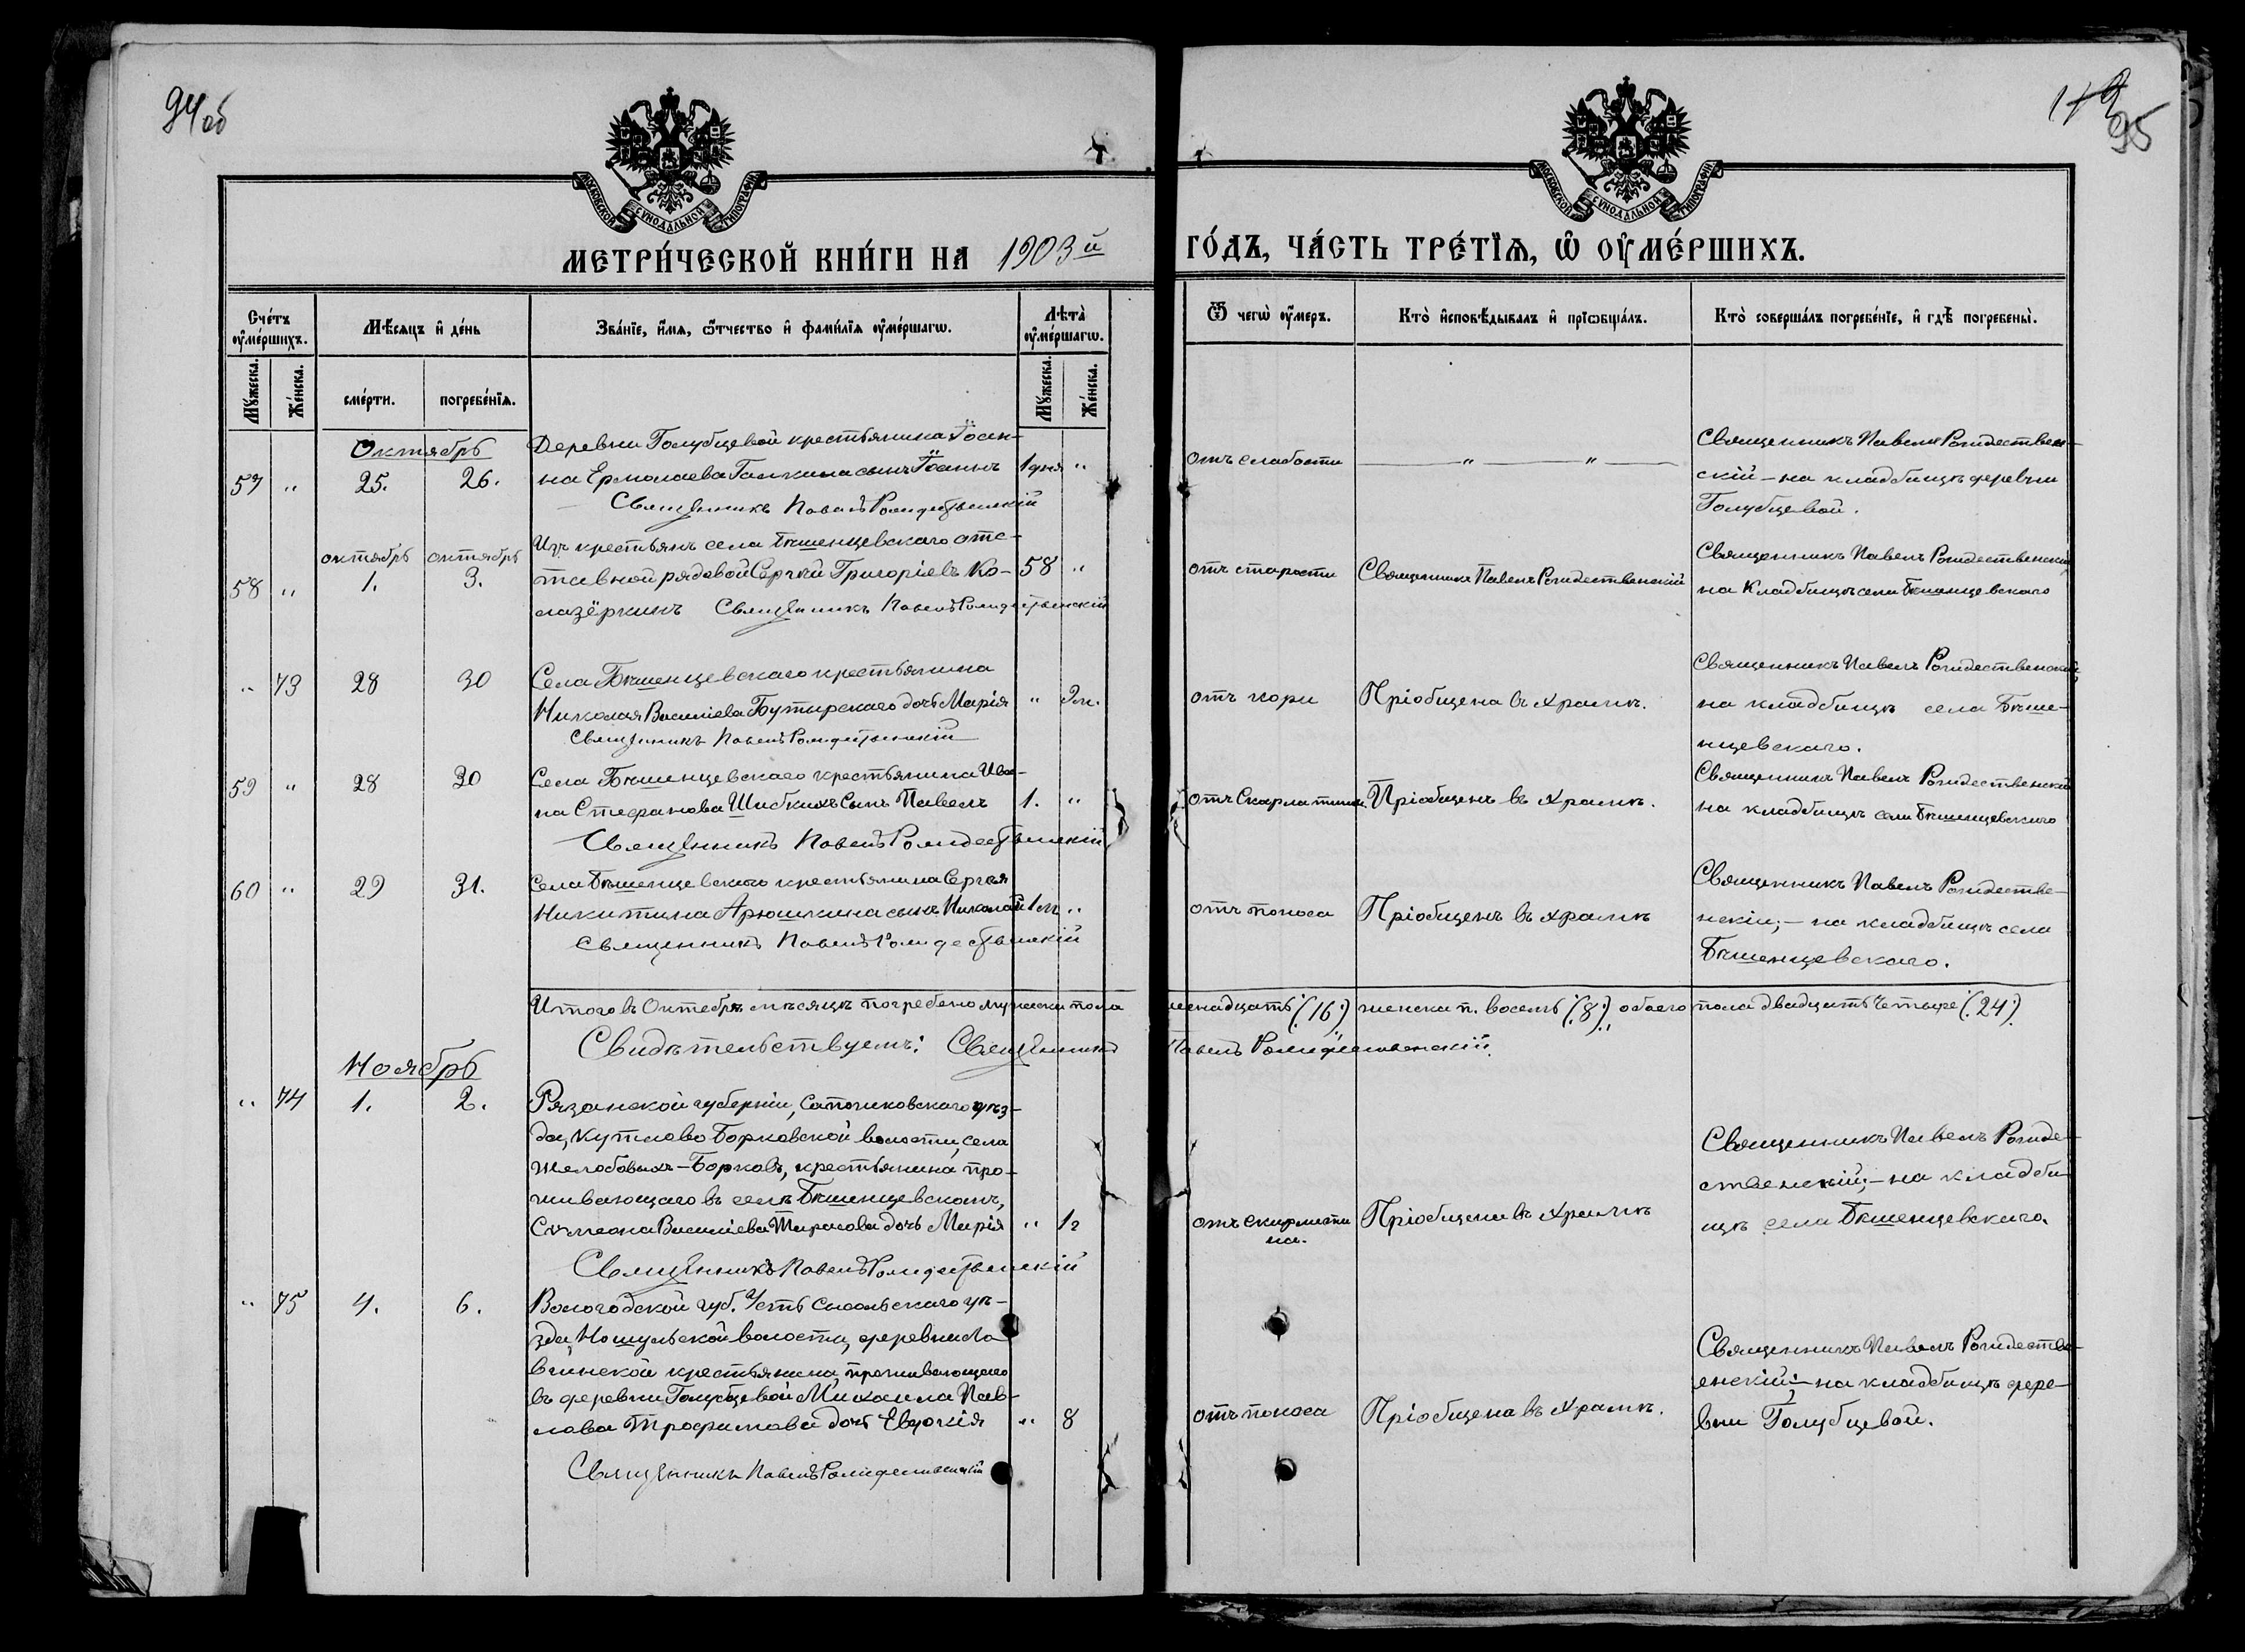 94об
112
95
МОСКОВСКОЙ СѴНОДАЛЬНОЙ ТИПОГРАФІИ
МОСКОВСКОЙ СѴНОДАЛЬНОЙ ТИПОГРАФІИ
МЕТРИ́ЧЕСКОЙ КНИ́ГИ НА 1903й
ГО́ДЪ, ЧА́СТЬ ТРЕ́ТЇѦ, Ѡ҆ ОУ҆МЕ́РШИХЪ.
Сче́тъ оу҆ме́ршихъ.
Мѣ́сяцъ и҆ де́нь
Зва́нїе, и҆́мя, ѻ҆́тчество и҆ фами́лїя оу҆ме́ршагѡ.
Лѣта̀ оу҆ме́ршагѡ.
Ѿ чегѡ̀ оу҆́меръ.
Кто̀ и҆сповѣ́дывалъ и҆ прїѡбща́лъ.
Кто̀ соверша́лъ погребе́нїе, и҆ гдѣ̀ погребены̀.
Мꙋ́жеска.
Же́нска.
сме́рти.
погребе́нїя.
Мꙋ́жеска.
Же́нска.
Октябрь
57 " 25. 26.
Деревни Голубцевой крестьянина Іоан-
на Ермолаева Галкина сынъ Іоаннъ 1 дня "
Священникъ Павелъ Рождественскій
отъ слабости
— " — " —
Священникъ Павелъ Рождествен-
скій – на кладбищѣ деревни
Голубцевой.
октябрь октябрь
58 " 1. 3.
Изъ крестьянъ села Бѣшенцевскаго отс-
тавной рядовой Сергѣй Григоріевъ Ко- 58 "
лазёркинъ Священникъ Павелъ Рождественскій
отъ старости
Священникъ Павелъ Рождественскій
Священникъ Павелъ Рождественскій
на Кладбищѣ села Бѣшенцевскаго
" 73 28 30
Села Бѣшенцевскаго крестьянина
Николая Василіева Бутырскаго дочь Марія " 2 м.
Священникъ Павелъ Рождественскій
отъ кори
Пріобщена въ храмѣ.
Священникъ Павелъ Рождественскій
на кладбищѣ села Бѣше-
нцевскаго.
59 " 28 30
Села Бѣшенцевскаго крестьянина Ива-
на Стефанова Шибкихъ Сынъ Павелъ 1. "
Священникъ Павелъ Рождественскій
отъ Скарлатины.
Пріобщенъ въ храмѣ.
Священникъ Павелъ Рождественскій
на кладбищѣ села Бѣшенцевскаго
60 " 29 31.
Села Бѣшенцевскаго крестьянина Сергѣя
Никитина Арюшкина сынъ Николай 1 м. "
Священникъ Павелъ Рождественскій
отъ поноса
Пріобщенъ въ храмѣ
Священникъ Павелъ Рождестве-
нскій; – на кладбищѣ села
Бѣшенцевскаго.
Итого въ Октябрѣ мѣсяцѣ погребено мужеска пола
шенадцать (16) женска п. восемь (8), обоего пола двадцать четыре (24)
Свидѣтельствуемъ: Священникъ
Павелъ Рождественскій.
Ноябрь
" 74 1. 2.
Рязанской губерніи, Сапожковскаго уѣз-
да, Путлово Борковской волости, села
Желобовыхъ-Борковъ, крестьянина, про-
живающаго въ селѣ Бѣшенцевскомъ,
Сѵмеона Василіева Тарасова дочь Марія " 1 2
Священникъ Павелъ Рождественскій
отъ скарлати
на.
Пріобщена въ храмѣ
Священникъ Павелъ Рожде-
ственскій; – на кладби-
щѣ села Бѣшенцевскаго.
" 75 4. 6.
Вологодской губ. Усть Сысольскаго уѣ-
зда, Ношульской волости, деревни Ла
вкинской крестьянина, проживающаго
въ деревни Голубцевой Михаила Пав-
лова Трофимова дочь Евдокія " 8
Священникъ Павелъ Рождественскій
отъ поноса
Пріобщена въ храмѣ.
Священникъ Павелъ Рождестве-
енскій; – на кладбищѣ дере-
вни Голубцевой.